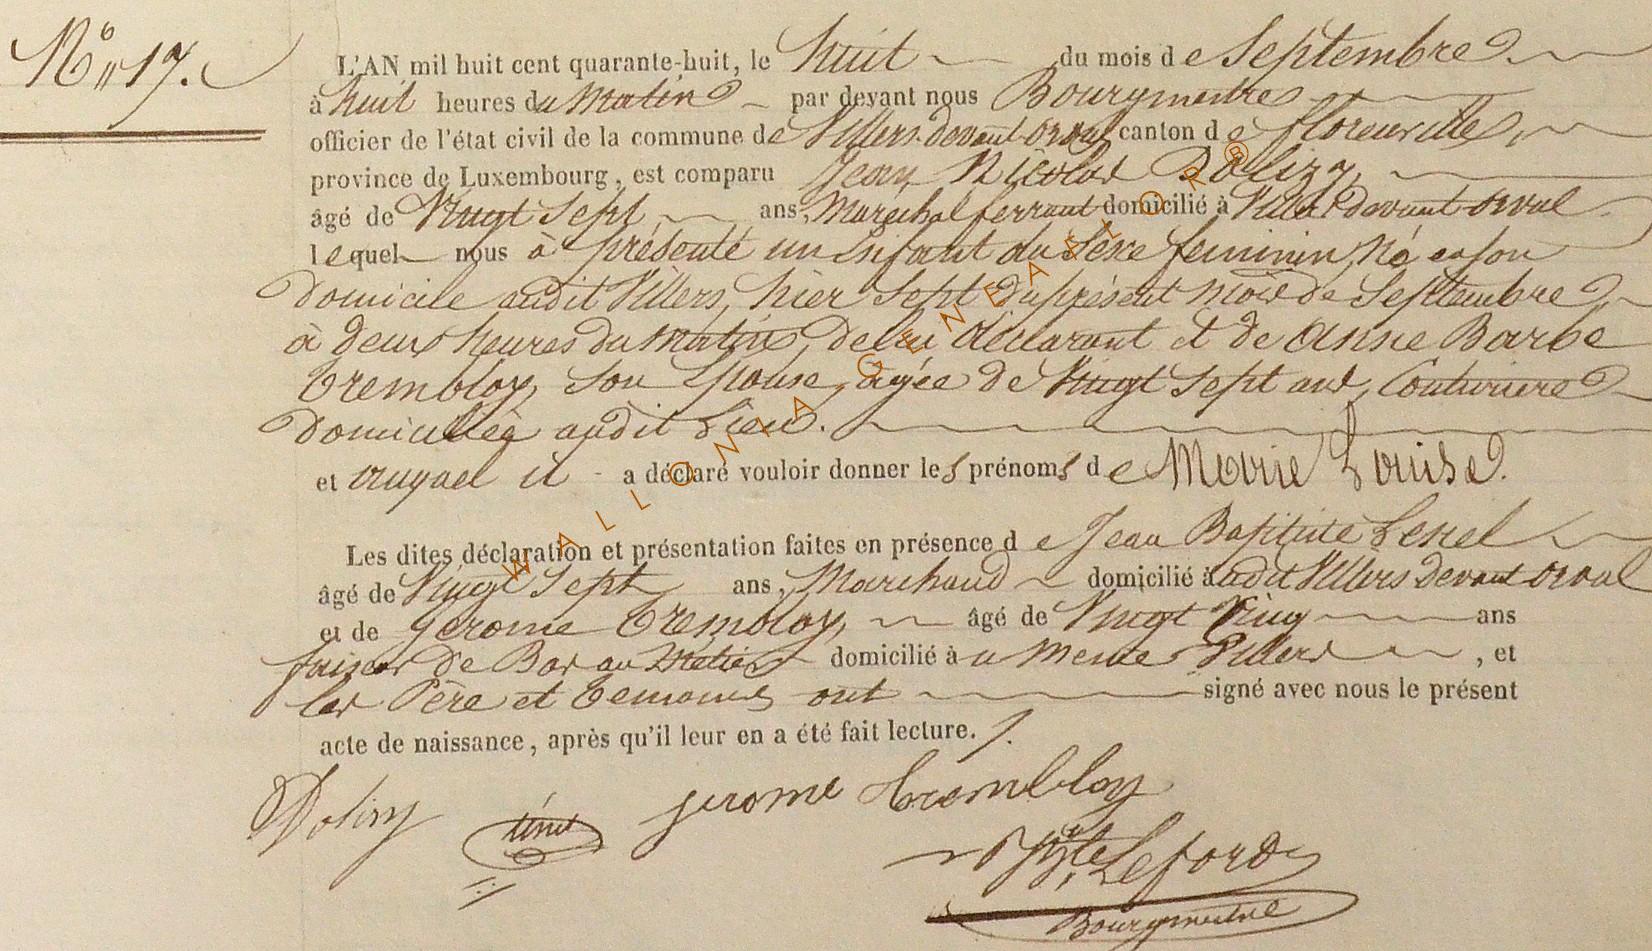 No 17.
L'AN mil huit cent quarante-huit, le huit du mois de Septembre
à huit heures du Matin par devant nous Bourgmestre
officier de l'état civil de la commune de Villers devant orval canton de florenville,
province de Luxembourg, est comparu Jean Nicolas Dolizy,
âgé de Vingt Sept ans, Marechal ferrant domicilié à Villers devant orval
lequel nous à présenté un Enfant du Sexe feminin, Né en son
Domicile audit Villers, hier Sept du présent mois de Septembre,
à deux heures du matin, de lui déclarant et de Anne Barbe
Trembloy, Son Epouse, agée de Vingt Sept ans, Couturiere
Domiciliée audit Lieu.
et auquel il a déclaré vouloir donner les prénoms de Marie Louise.
Les dites déclaration et présentation faites en présence de Jean Baptiste
âgé de Vingt Sept ans, Marchand domicilié audit Villers Devant orval
et de Jerome Trembloy, âgé de Vingt Cinq ans
faiseur de Bas au Metier domicilié à u Meme Villers, et
les Père et Temoins ont signé avec nous le présent
acte de naissance, après qu'il leur en a été fait lecture.
Dolizy jerome Trembloy
Bourgmestre
WALLONIA GENEAFLOR ®